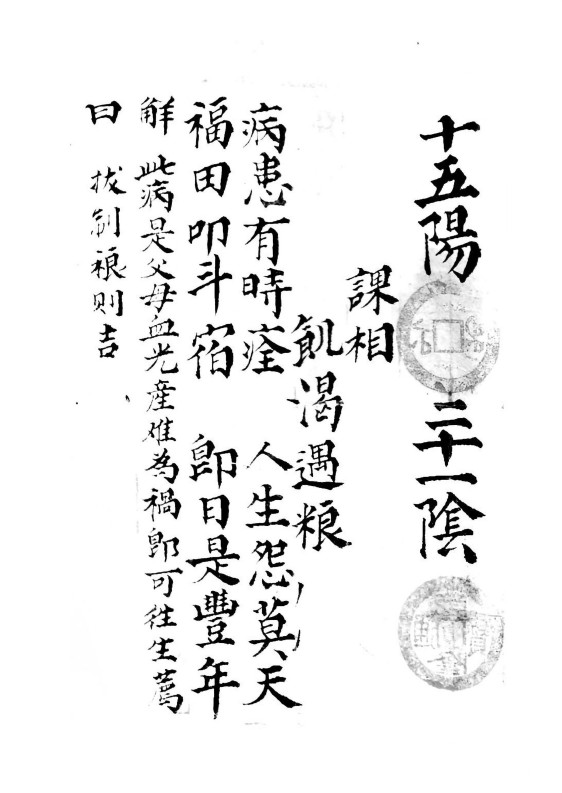 十五陽 三十一陰
課相
飢渴遇粮
病患有時痊 人生怨莫天
福田叩斗宿 即日是豐年
解 此病是父母血光產难為禍即可往生薦
曰 拔制禳则吉